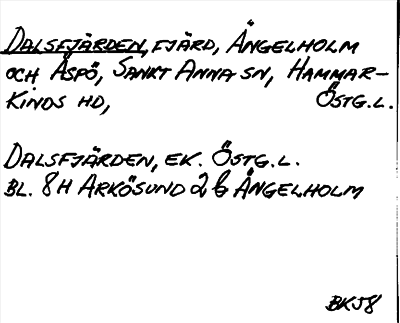 DALSFJÄRDEN, FJÄRD, ÄNGELHOLM
OCH ÄSPÖ, SANKT ANNA SN, HAMMAR-
KINDS HD, ÖSTG.L.
DALSFJÄRDEN, EK. ÖSTG.L.
BL. 8H ARKÖSUND 2 b ÄNGELHOLM
BKJ8